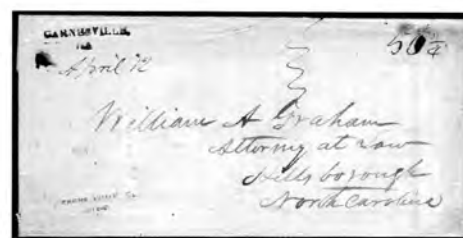 CARNESVILLE,
April 12
William A Graham
Attorny at Law
Hillsborough
North Carolina